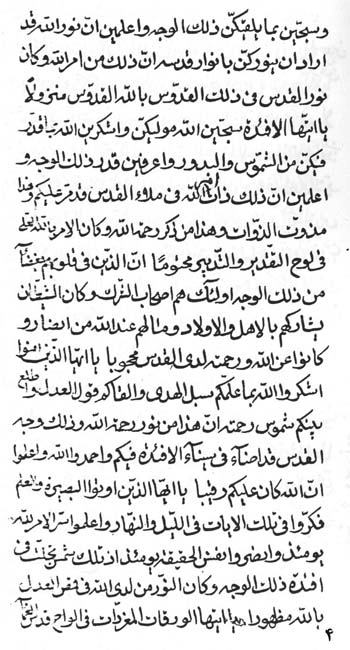 وسبحین بما یلقیکن ذلك الوجه واعلمین ان نور الله قد
اراد ان ینورکن بانوار قدسه ان ذلك من امر الله وکان
نور القدس فی ذلك الفردوس بالله القدوس منزولا
یا ایتها الافئدة سبحین الله مولیکن واشکرین الله بما قدر
فیکن من الشموس والبدور واعرفین قدر ذلك الوجه و
اعلمین ان ذلك ذات الله فی ملاء القدس قد مر علیکم
مذوت الذوات وهذا من ذکر رحمة الله وکان الامر
فی لوح التقدیر والتدبیر محتوما ان الذین فی قلوبهم بغضاء
من ذلك الوجه اولئك هم اصحاب الشرك وکان الشیطان
یشارکهم بالاهل والاولاد وما لهم عند الله من انصار و
کانوا عن الله ورحمته لدی القدس محجوبا یا ایها الذین امنوا
اشکروا الله بما علمکم سبل الهدی والقاکم قول العدل
بینکم شموس رحمته ان هذا من نور رحمة الله وذلك وجه
القدس قد اضاء فی سیناء الافئدة فیکم واحمدوا الله واعلموا
ان الله کان علیکم رقیبا یا ایها الذین اوتوا البصیرة والعلم
فکروا فی تلك الایات فی اللیل والنهار واعلموا اسرار الامر لله
یومئذ وابصروا نفس الحقیقة یومئذ از تلك شمس تجلت فی
افئدة ذلك الوجه وکان النور من لدی الله فی قمص العدل
بالله مظهورا ایتها الورقات المغردات فی الواح قدس
۴